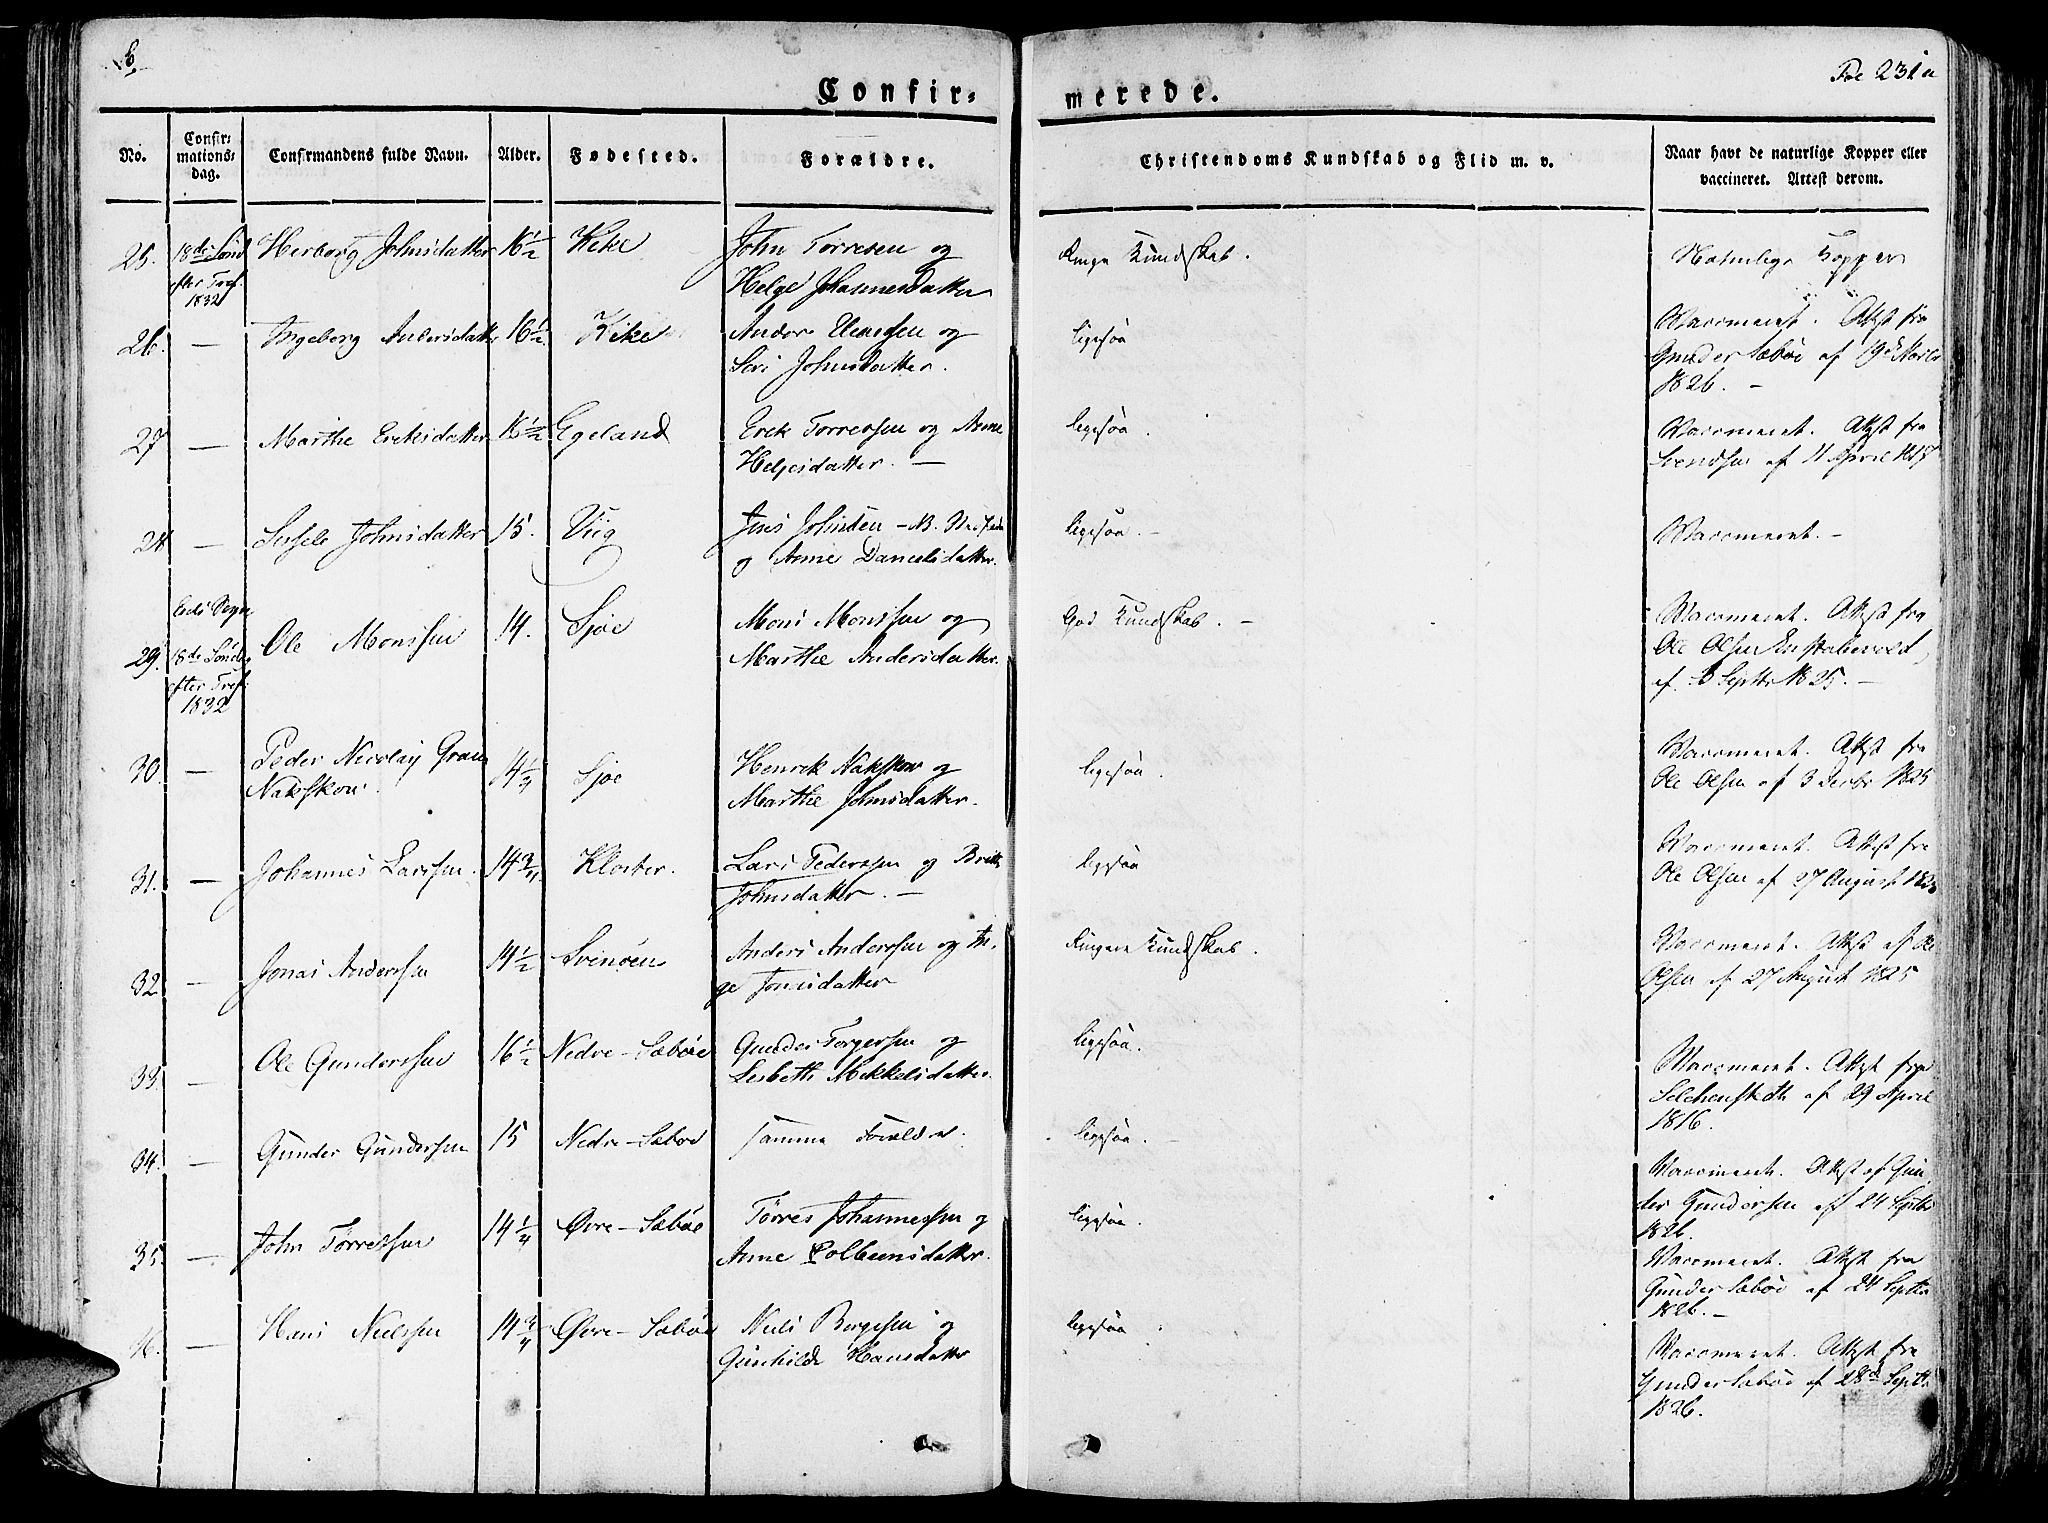 Fol 231a
Confirmerede.
No.
Confirmationsdag.
Confirmandens fulde Navn.
Alder.
Fødested.
Forældre.
Christendoms Kundskab og Flid m. v.
Naar havt de naturlige Kopper eller vaccineret. Attest derom.
25. 18de Sønd Herborg Johnsdatter 16½ Kike John Torresen og Ringe Kundskab. Naturlige Kopper
efter Tref. 1832 Helge Johannesdatter
26. — Ingeborg Andersdatter 16½ Kike Anders og ligesaa Vaccineret. Attest fra
Siri Johnsdatter. Gunder Sæbøe af 19de
1826. —
27 — Marthe Eriksdatter 16½ Egeland Erik Torressen og Anne ligesaa. Vaccineret. Attest fra
Helgesdatter. — Svendsen af 11 April 1817
28 — Johnsdatter 15. Viig Johnsen og Anne Danielsdatter. ligesaa. — Vaccineret. —
29. 18de Sønd. Ole Monssen 14. Sjøe Mons Monssen og God Kundskab. — Vaccineret. Attest fra
efter Tref. 1832 Marthe Andersdatter. Ole Olsen
af 3 Septbr 1825. —
30. — Peder Nicolay Gram 14¼ Sjøe Henrik Nakskow og ligesaa. Vaccineret. Attest fra
Nakskow. Marthe Johnsdatter. Ole Olsen af 3 1825
31. — Johannes Larssen. 14¾ Kloster. Lars Pederssen og Britte ligesaa Vaccineret. Attest fra
Johnsdatter. — Ole Olsen af 27 August
32 — Jonas Anderssen 14½ Svinøen Anders Anderssen og In- Ringere Kundskab. Vaccineret. Attest af Ole
ge Jonsdatter Olsen af 27 August 1825
33. — Ole Gunderssen 16½ Nedre-Sæbøe Gunder Torgerssen og ligesaa. Vaccineret. Attest fra
Lisbeth Mikkelsdatter. af 29 April
1816.
34. — Gunder Gundersen 15 Nedre-Sæbøe samme Foreldre. ligesaa. — Vaccineret. Attest af Gun-
der Gundersen af 24 Septbr
1826.
35. — John Tørressen 14¼ Øvre-Sæbøe Tørres Johannessen og ligesaa. Vaccineret. Attest fra
Anne Colbeensdatter. Gunder Sæbøe af 24 Septbr
1826. —
36. — Hans Nielssen 14¾ Øvre-Sæbøe Niels Borgesen og ligesaa Vaccineret. Attest fra
Gunhilde Hansdatter Gunder Sæbøe af 28de Septbr
1826.